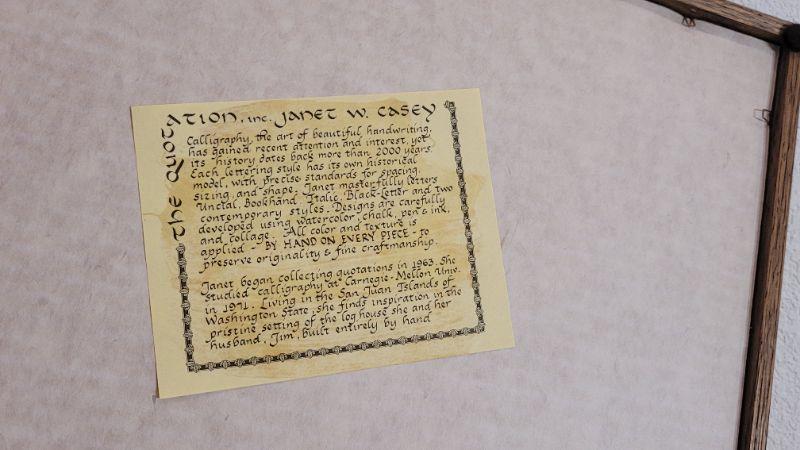 The Quotation, inc. Janet W. Casey
Calligraphy, the art of beautiful handwriting,
has gained recent attention and interest, yet
its history dates back more than 2000 years.
Each lettering style has its own historical
model, with precise standards for spacing,
sizing and shape. Janet masterfully letters
Uncial, Bookhand, Italic, Black-Letter and two
contemporary styles. Designs are carefully
developed using watercolor, chalk, pen & ink,
and collage. All color and texture is
applied - BY HAND ON EVERY PIECE - to
preserve originality & fine craftmanship.
Janet began collecting quotations in 1963. She
studied calligraphy at Carnegie-Mellon Univ.
in 1971. Living in the San Juan Islands of
Washington State, she finds inspiration in the
pristine setting of the log house she and her
husband, Jim, built entirely by hand